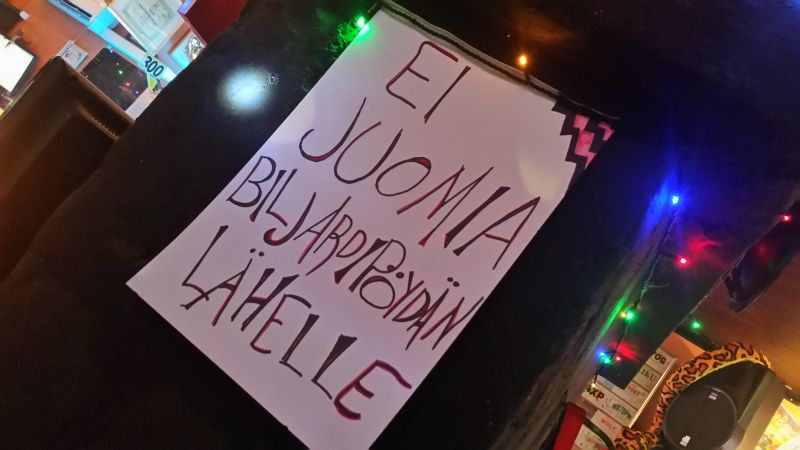 EI
JUOMIA
BILJARDIPÖYDÄN
LÄHELLE
300